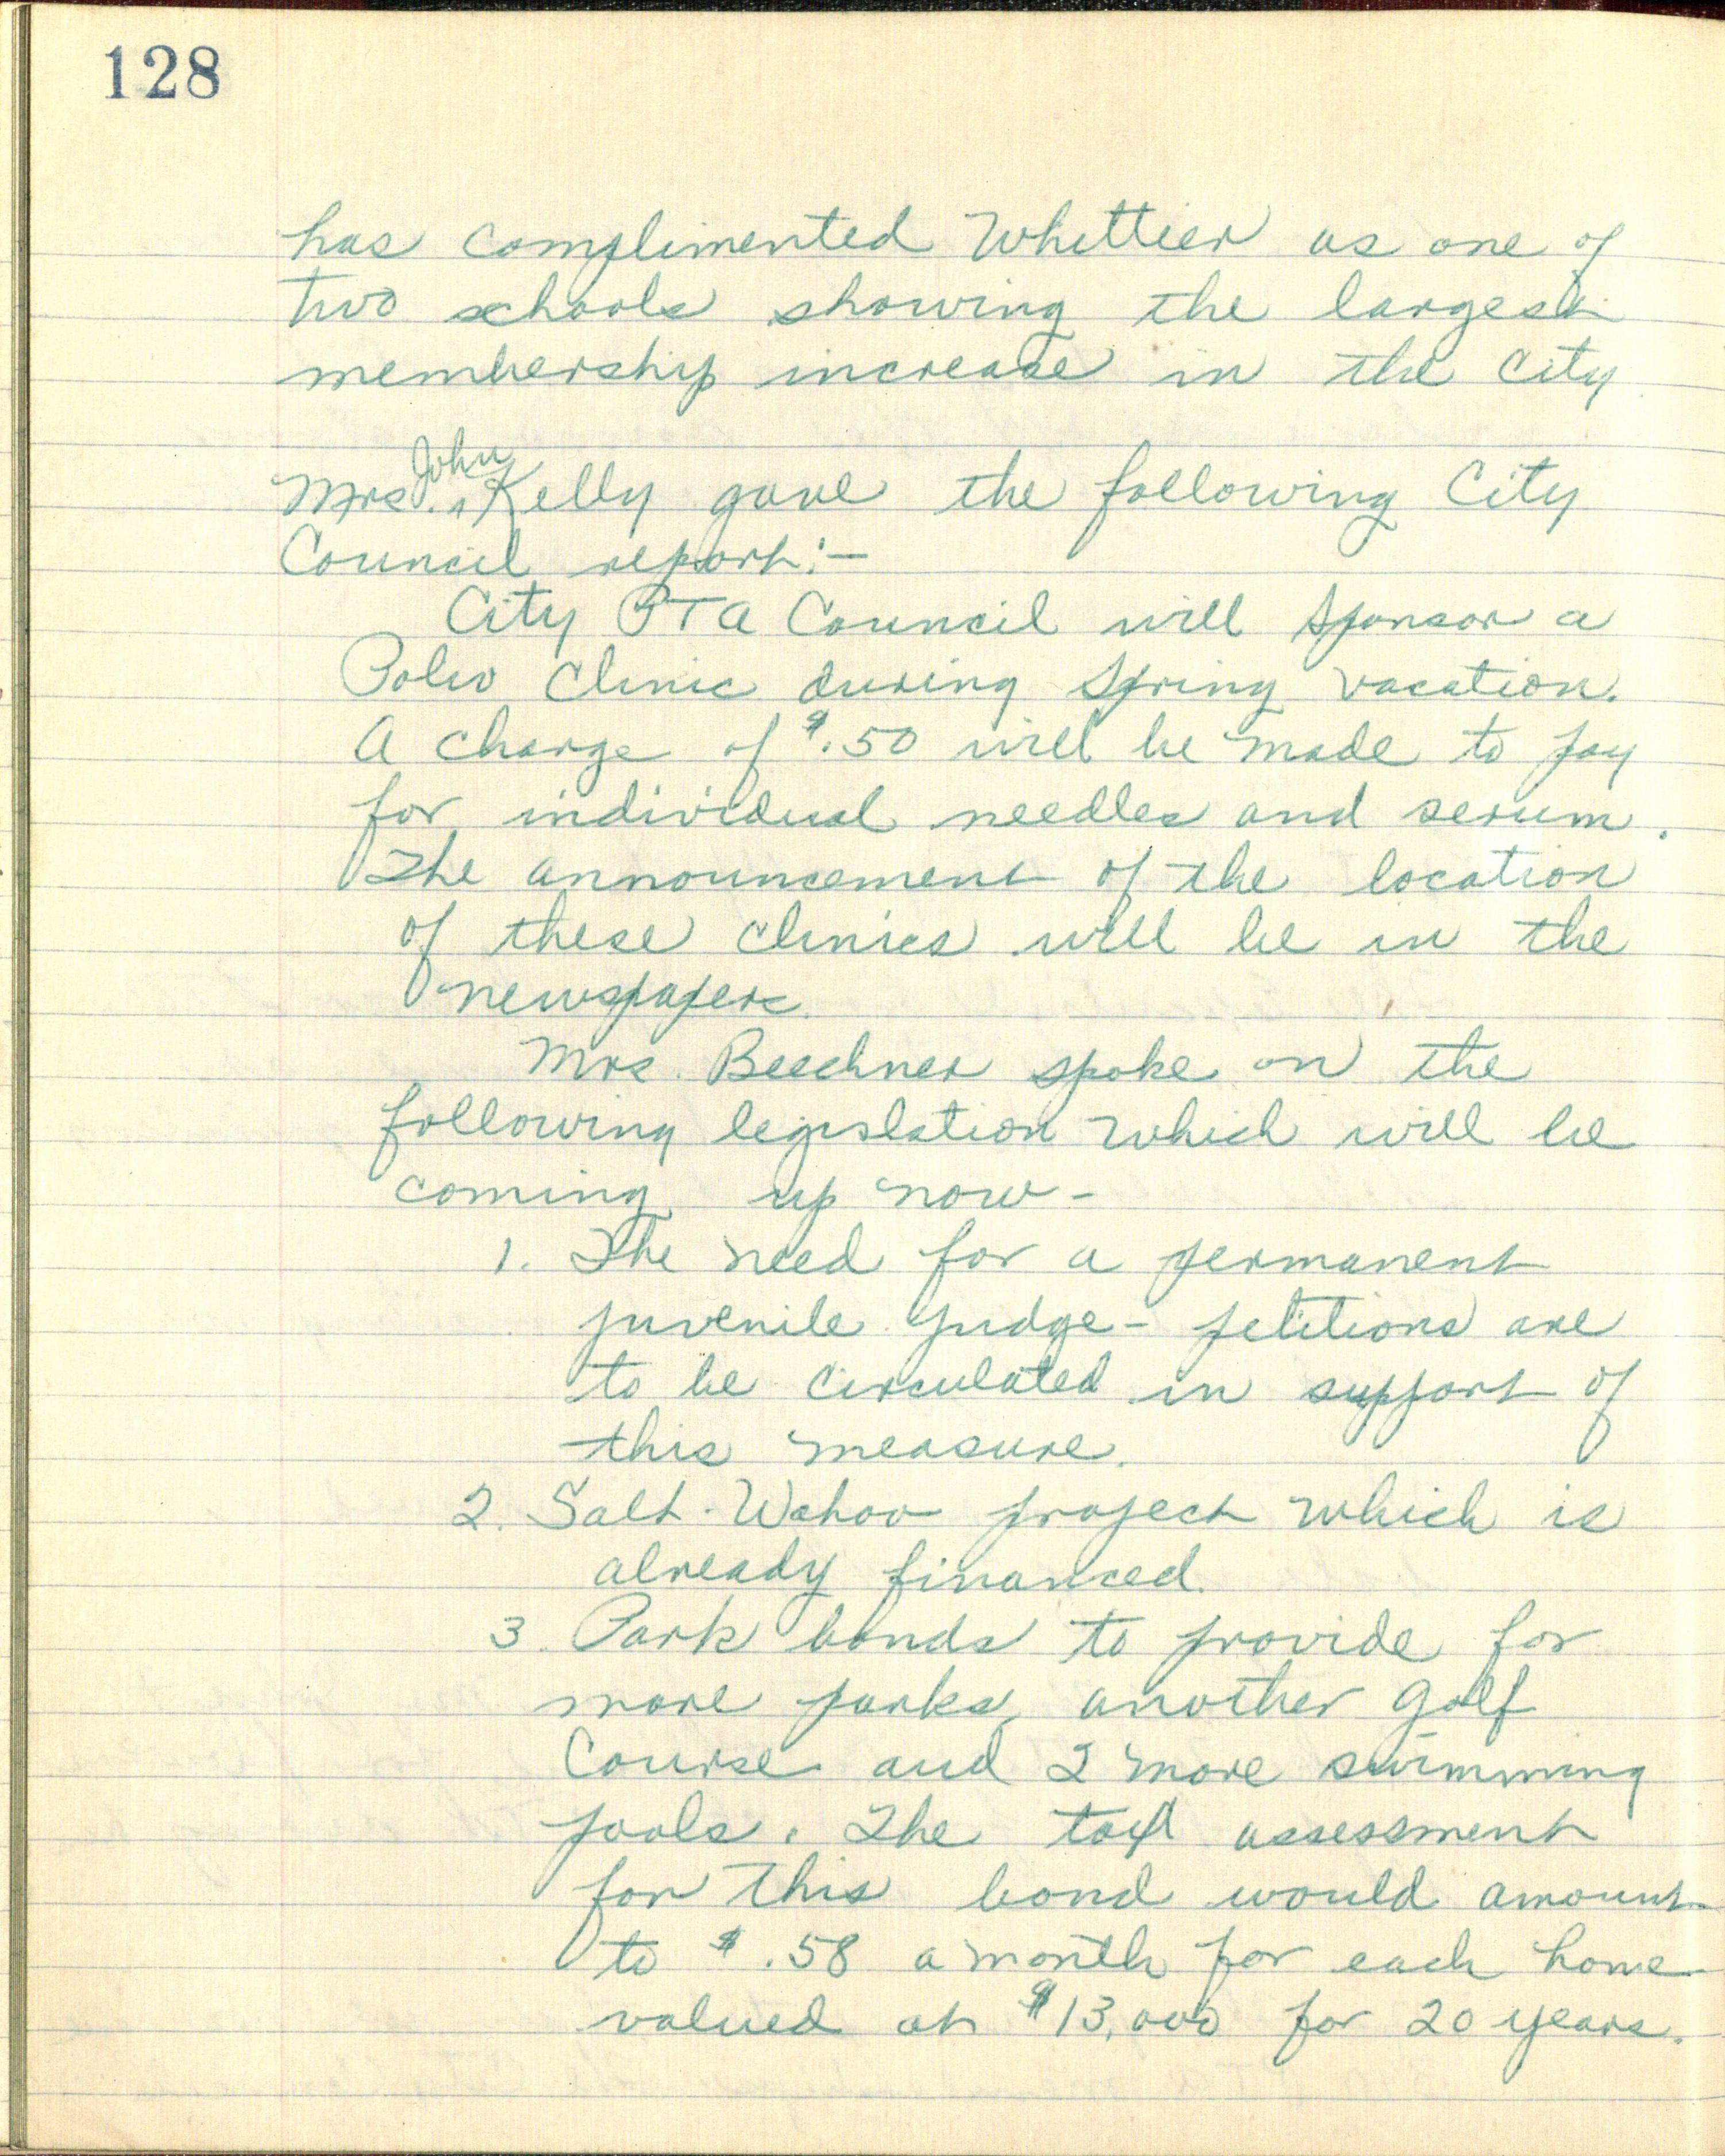 128
has complimented Whittier as one of
two schools showing the largest
membership increase in the City
John
Mrs. Kelly gave the following City
Council report:—
City PTA Council will sponsor a
Polio Clinic during Spring vacation.
A charge of $.50 will be made to pay
for individual needles and serum.
The announcement of the location
of these clinics will be in the
newspapers.
Mrs. Beechner spoke on the
following legislation which will be
coming up now -
1. The need for a permanent
juvenile judge - petitions are
to be circulated in support of
this measure.
2. Salt-Wahoo project which is
already financed.
3. Park bonds to provide for
more parks, another golf
Course and 2 more swimming
pools. The tax assessment
for this bond would amount
to $.58 a month for each home
valued at $13,000 for 20 years.